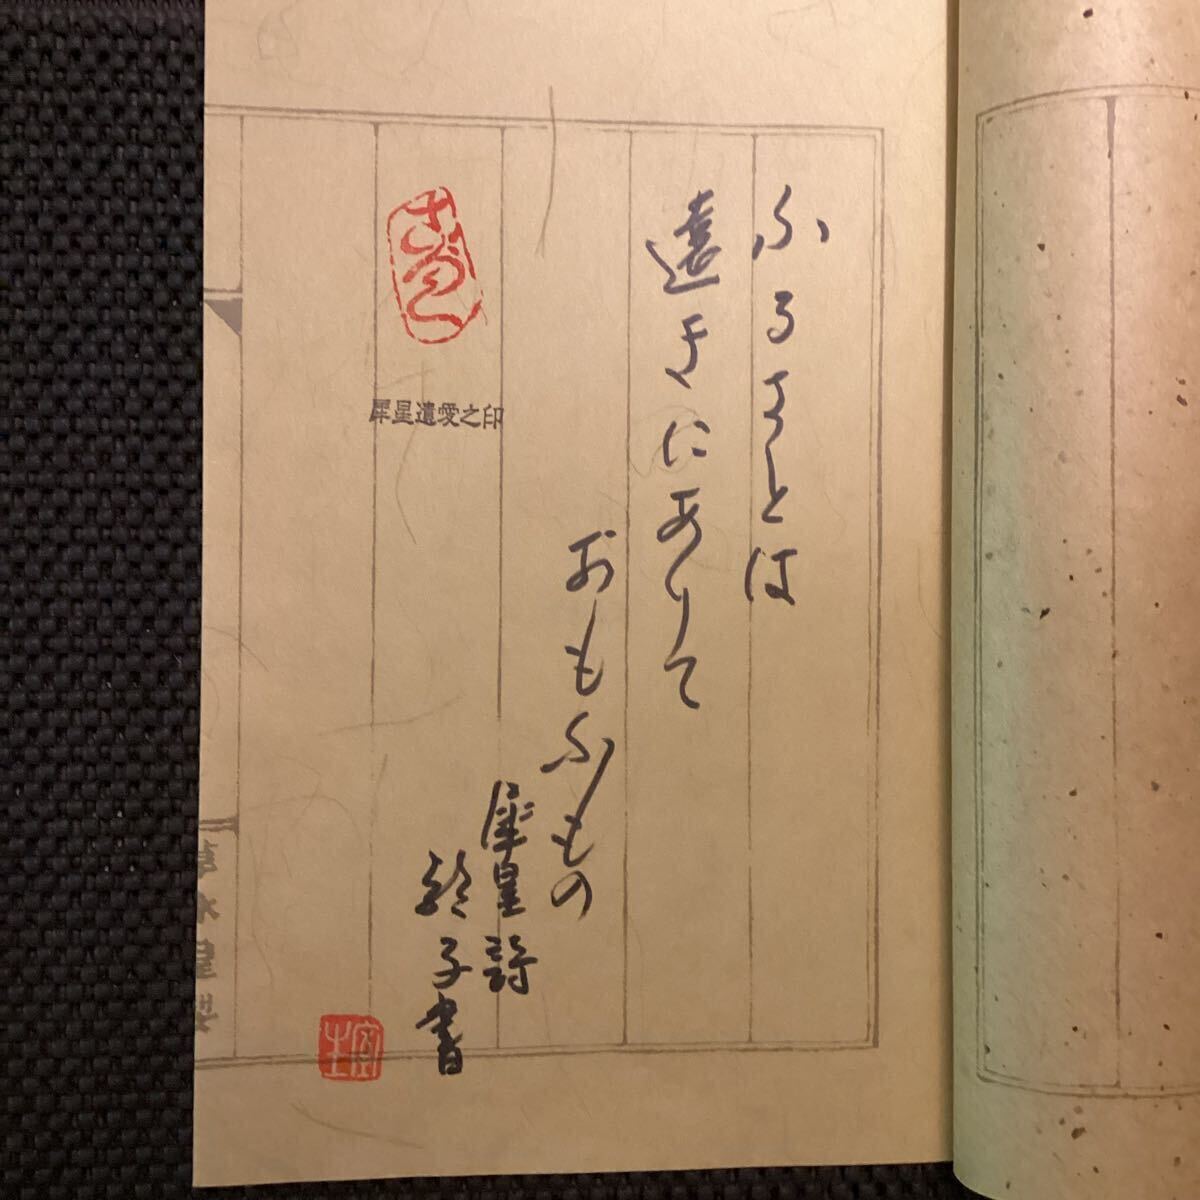 ふるさとは
遠きにありて
おもふもの
犀星詩
鈴子書
犀星遺愛之印
室生